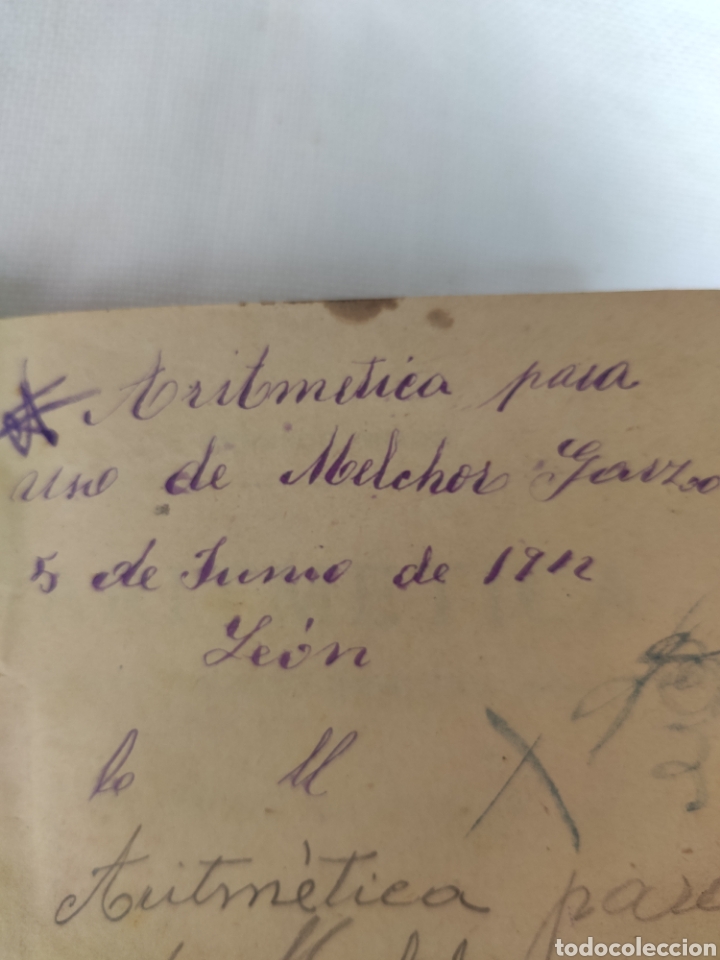 Aritmetica para
uso de Melchor Garzo
5 de Junio de 1912
León
lo M
Aritmética para
todocoleccion